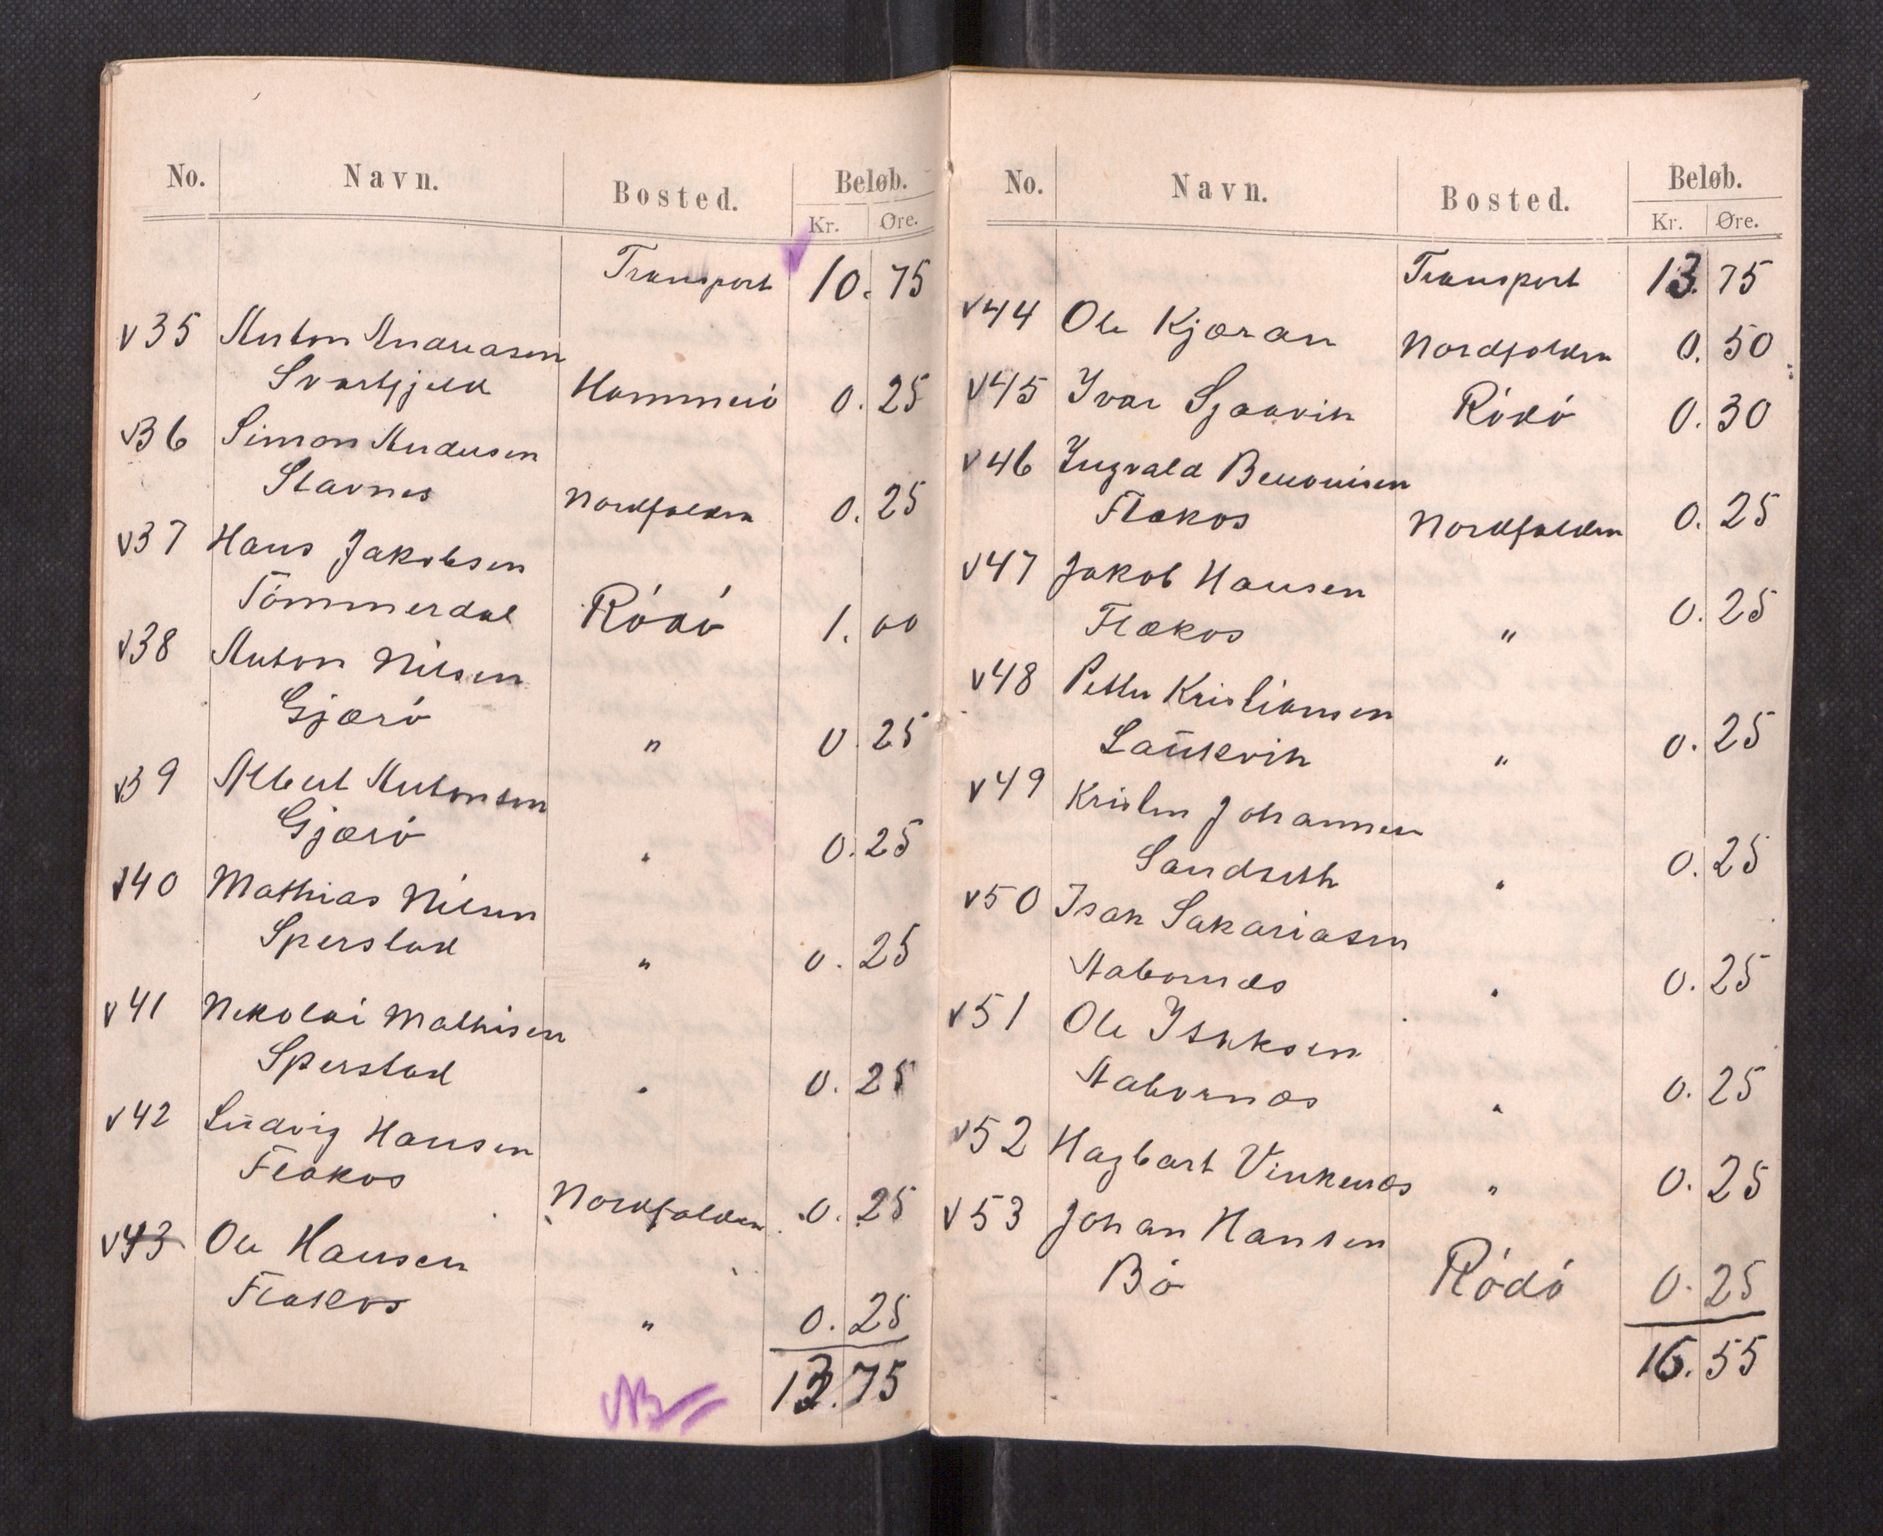 No. Navn. Bosted. Beløb.
Kr. Øre.
Transport 10. 75
v35 Anton Andreasen
Svartfjeld Hammerö 0. 25
v36 Simon Andersen
Stavnes Nordfolden 0. 25
v37 Hans Jakobsen
Tömmerdal Rödö 1. 00
v38 Anton Nilsen
Gjærö " 0. 25
v39 Albert Antonsen
Gjærö " 0. 25
v40 Mathias Nilsen
Sperstad " 0. 25
v41 Nekolai Mathisen
Sperstad " 0. 25
v42 Ludvig Hansen
Flakos Nordfolden 0. 25
v43 Ole Hansen
Flakos " 0. 25
13. 75
NB
No. Navn. Bosted. Beløb.
Kr. Øre.
Transport 13. 75
v44 Ole Kjæran Nordfolden 0. 50
v45 Ivar Sjaavik Rödö 0. 30
v46 Ingvald
Flækos Nordfolden 0. 25
v47 Jakob Hansen
Flækos " 0. 25
v48 Petter Kristiansen
Laukvik " 0. 25
v49 Kristen Johannesen
Sandseth " 0. 25
v50 Isak Sakariasen
Aabornæs " 0. 25
v51 Ole Isaksen
Aabornæs " 0. 25
v52 Hagbart Vinkenæs " 0. 25
v53 Johan Hansen
Bö Rödö 0. 25
16. 55